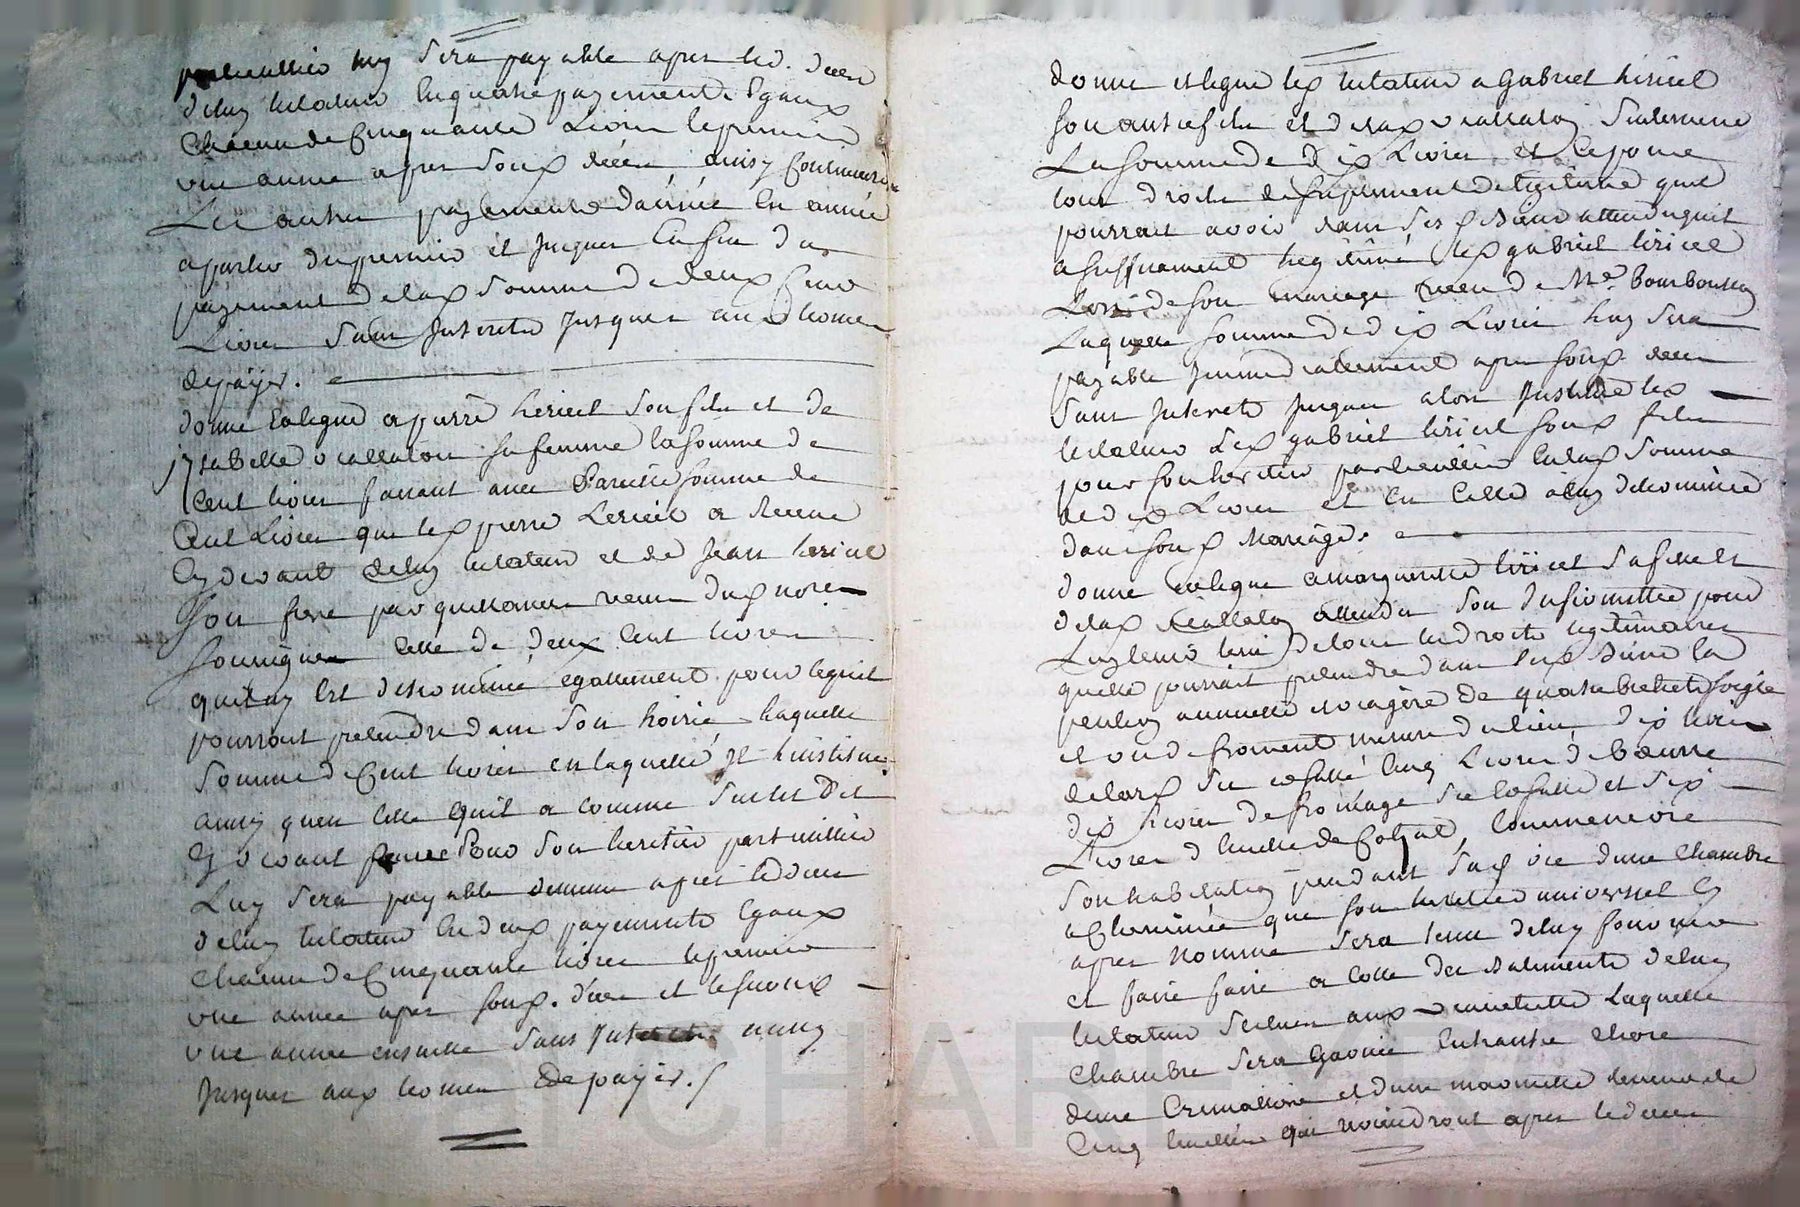 particullier luy sera payable apres led. deces
deluy testateur en quatre payements Egaux
Chacun de Cinquante Livres le premier
une annee apres son d deces ainsy Continuer
Les autres payements d'année En année
a parter du premier et Jusques En fin du
payement de lad somme de deux Cent
Livres sans Interets Jusques aux termes
de payer.
donne Et legue a pierre leriiel son fils et de
Izabelle veallaton sa femme la somme de
Cent livres faisant avec Pareille somme de
Cent Livres que led pierre Leriiel a Receue
Cy devant deluy testateur et de Jean leriiel
son frere par quittances receu du not.re
soussigne Celle de deux Cent livres
quil luy Est destinnée egallement pour le quil
pourroit pretendre dans son hoirie laquelle
somme de Cent livres en laquelle Il l'institue
aussy qu'en Celle quil a comme sus est Dit
Cy devant Receue Pour son heretier particullier
Luy sera payable dememe apres le deces
deluy testateur En deux payements Egaux
Chacun de Cinquante livres le premier
une annee apres son d. deces et le second
une annee ensuitte sans Interets aussy
Jusques aux termes de payer./
donne et legue led testateur a Gabriel leriiel
son autre fils et de lad veallaton seulement
La somme de dix Livres et Ce pour
tous droits de suplement de legitime quil
pourroit avoir dans ses d Biens attendu quil
a suffisament legitimé led gabriel leriiel
Lors de son mariage receu de Me. Bourbousson
Laquelle somme de dix Livres luy sera
payable Immediatement apres son d. deces
sans Interets Jusques alors Instituee led
testateur led gabriel leriiel son d fils
pour son heretier particullier En lad somme
de dix Livres et En Celle a luy destinnée
dans son d Mariage.
donne Et legue a margueritte leriiel sa fille et
de lad veallaton attendu son Infirmittée pour
Luy tenir lieu de tous les droits legitimaires
quelle pourroit pretendre dans les d Biens la
pention annuelle viagere de quatre bichets soigle
et un de froment mesure du lieu dix livres
de lard sec et sallé Cinq Livres de Beurre
dix Livres de fromage sec et sallé et six
Livres d'huille de Colzat, Comme encore
son habitation pendant sad vie d'une Chambre
a Cheminée que son heretier universel Cy
apres nommé sera tenu deluy fournir
et faire faire a Cotté des Batiments deluy
testateur scitués aux laquelle
Chambre sera Garnie Entr'autre chose
d'une Cremaliere et d'une marmitte tenant de
Cinq Ecuellées qui viendront apres le deces